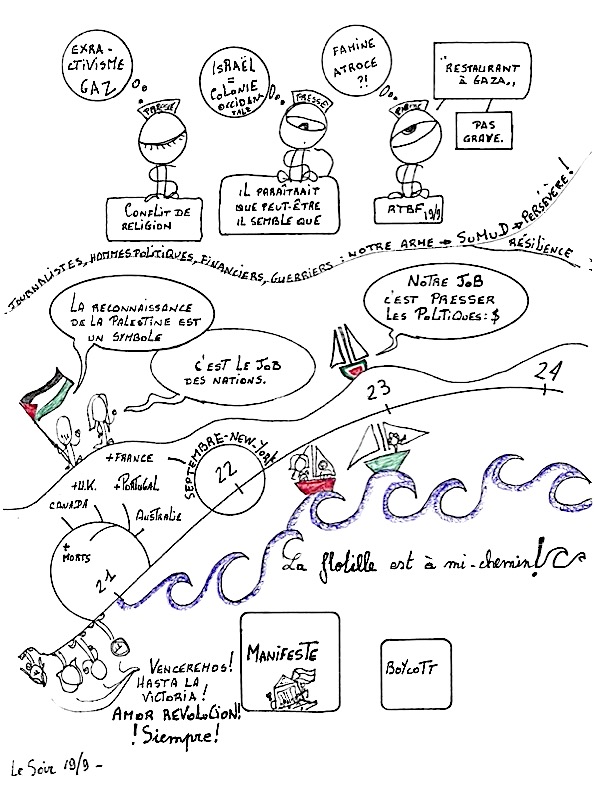 EXRA-
CTIVISME
GAZ
ISRAËL
=
COLONIE
OCCIDEN
TALE
FAMINE
ATROCE
?!
"RESTAURANT
À GAZA,,
PAS
GRAVE.
PRESSE
PRESSE
PRESSE
CONFLIT DE
RELIGION
IL PARAÎTRAIT
QUE PEUT-ÊTRE
IL SEMBLE QUE
RTBF 19/9
JOURNALISTES, HOMMES POLITIQUES, FINANCIERS, GUERRIERS : NOTRE ARME → SUMUD → PERSEVÈRE!
RÉSILIENCE
LA RECONNAISSANCE
DE LA PALESTINE EST
UN SYMBOLE
C'EST LE JOB
DES NATIONS.
NOTRE JOB
C'EST PRESSER
LES POLTIQUES: $
24
23
SEPTEMBRE-NEW-YORK
22
+ FRANCE
+U.K. +PORTUGAL
CANADA
AUSTRALIE
+
MORTS
21
La flotille est à mi-chemin!
VENCEREMOS!
HASTA LA
VICTORIA!
AMOR REVOLUCION!
!Siempre!
MANIFESTE
BOYCOTT
Le Soir 19/9 -